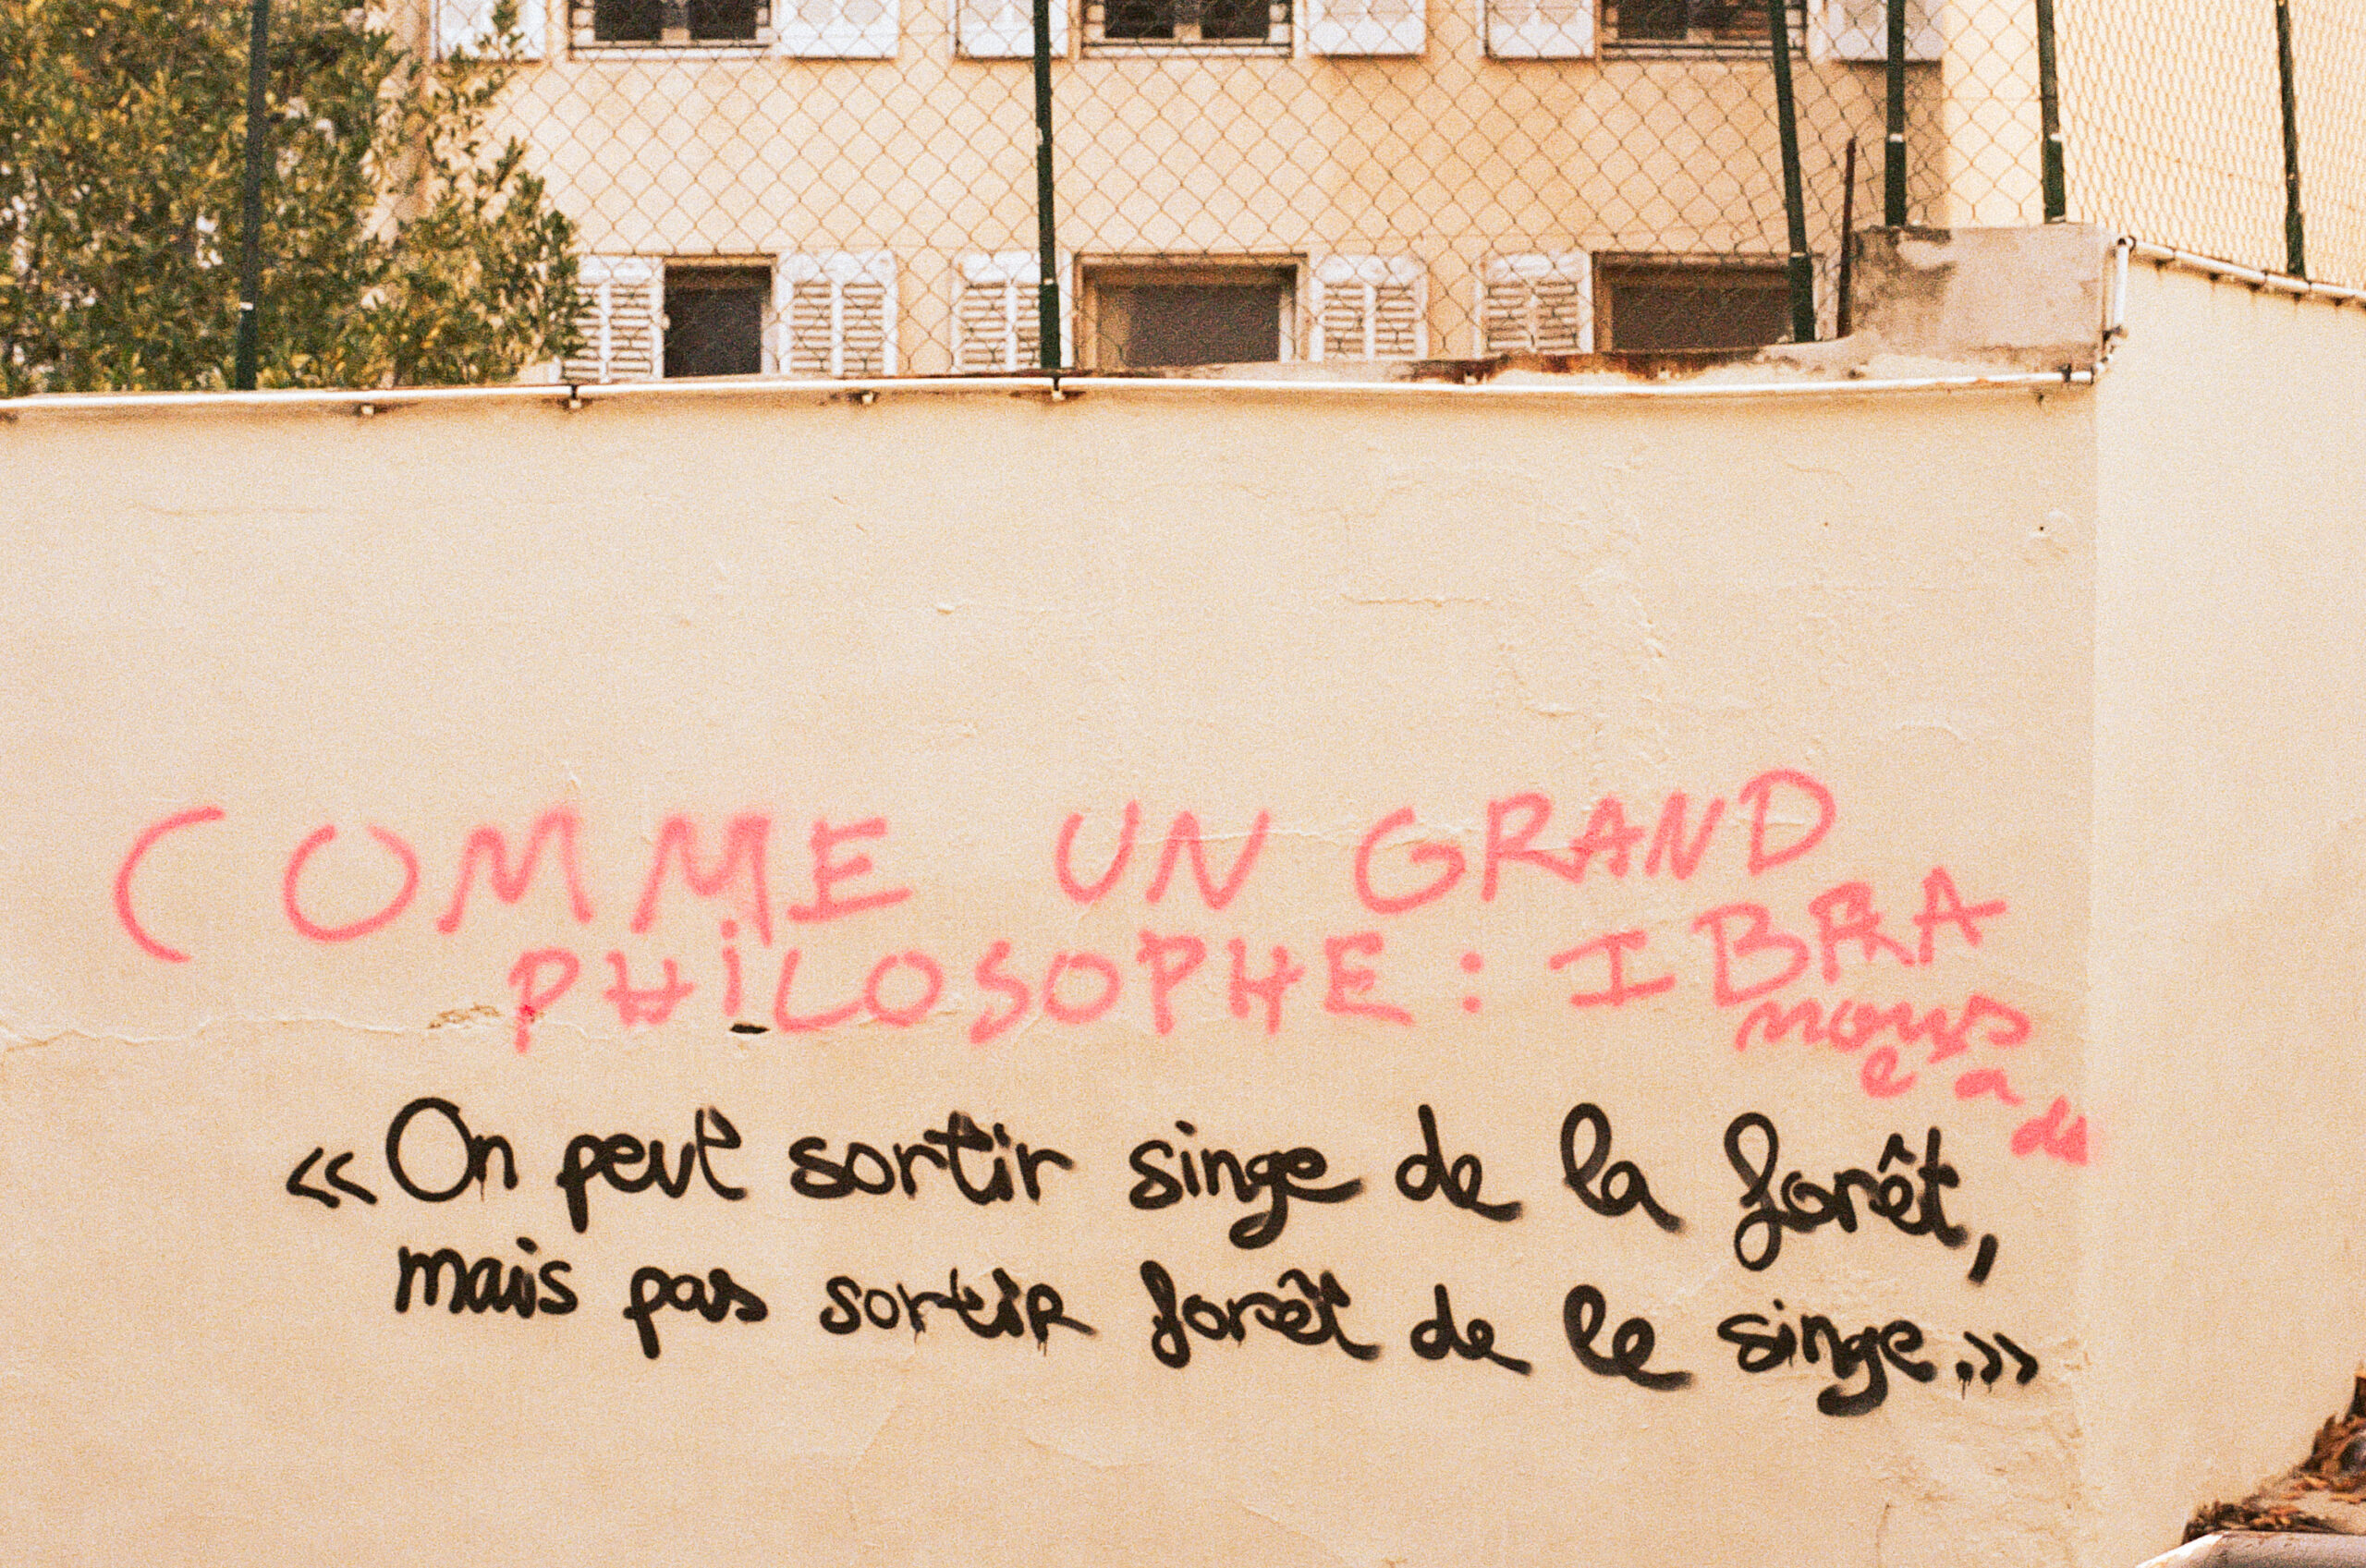 COMME UN GRAND
PHiLOSOPHE : IBRA
nous
e a
dit
« On peut sortir singe de la forêt,
mais pas sortir forêt de le singe. »